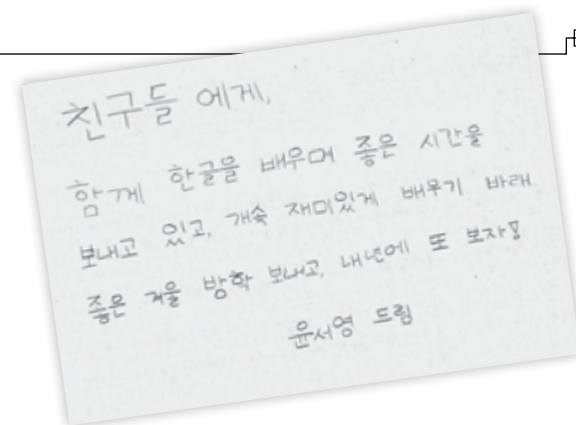 친구들 에게,
함께 한글을 배우며 좋은 시간을
보내고 있고, 개속 재미있게 배우기 바래
좋은 겨울 방학 보내고, 내년에 또 보자!
윤서영 드림